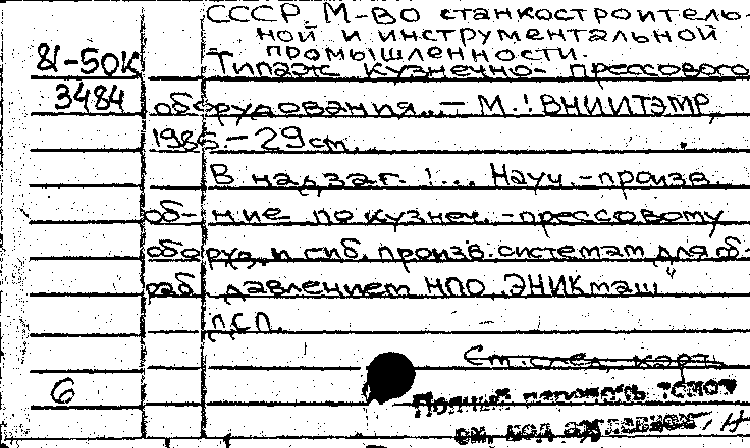 СССР. М-во станкостроитель-
ной и инструментальной
промышленности.
81-50К Типаж кузнечно-прессового
3484 оборудования... — М.: ВНИИТЭМР,
1986. — 29 см.
В надзаг.: ... Науч.-произв.
об-ние по кузнеч.-прессовому
оборуд. и гиб. произв. системам для об-
раб. давлением НПО „ЭНИКмаш"
ДСП.
См. след. карт.
6 Полный перечень томов
см. под заглавием, Н